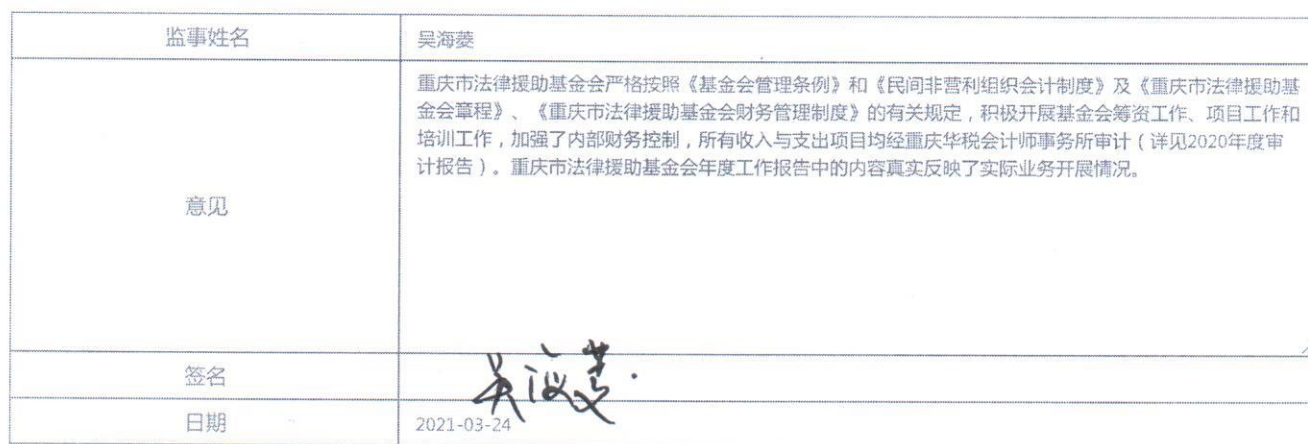 监事姓名
吴海菱
意见
重庆市法律援助基金会严格按照《基金会管理条例》和《民间非营利组织会计制度》及《重庆市法律援助基
金会章程》、《重庆市法律援助基金会财务管理制度》的有关规定，积极开展基金会筹资工作、项目工作和
培训工作，加强了内部财务控制，所有收入与支出项目均经重庆华税会计师事务所审计（详见2020年度审
计报告）。重庆市法律援助基金会年度工作报告中的内容真实反映了实际业务开展情况。
签名
吴海菱
日期
2021-03-24